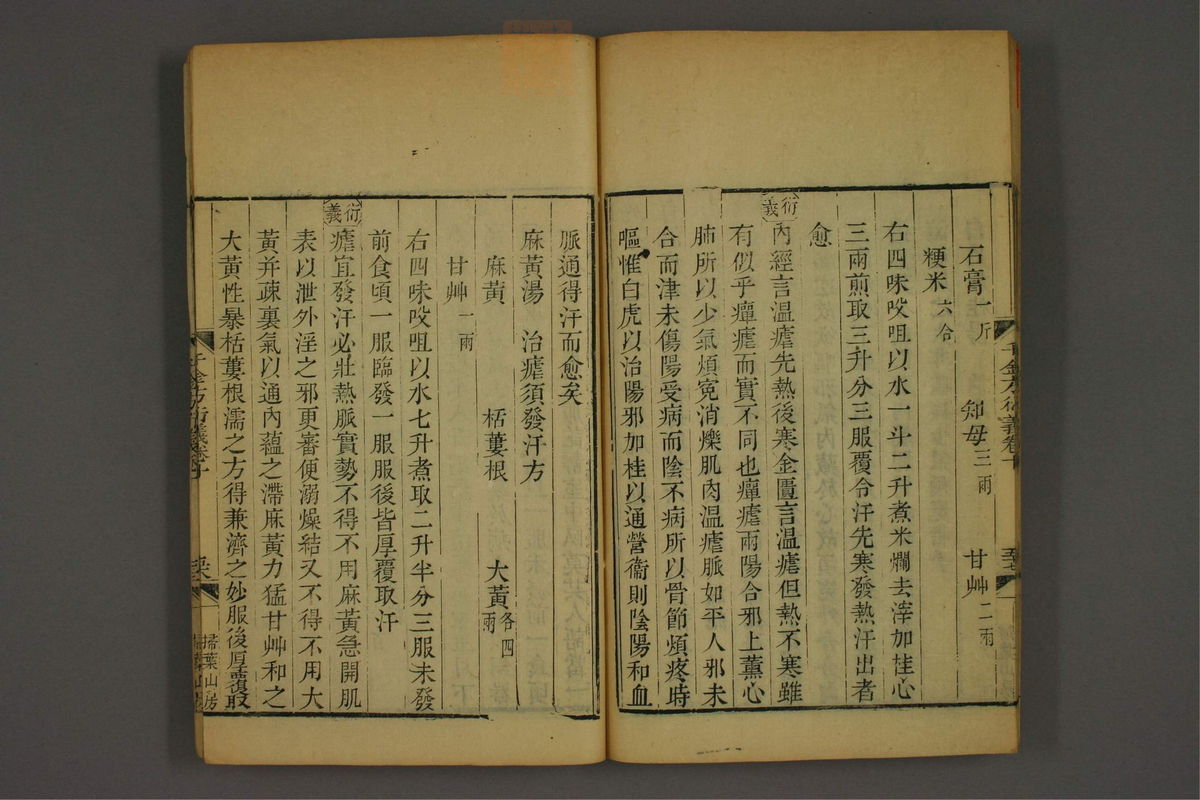 石膏一斤 知母三兩 甘艸二兩
粳米六合
右四味㕮咀以水一斗二升煮米爛去滓加桂心
三兩煎取三升分三服覆令汗先寒發熱汗出者
愈
衍義
內經言溫瘧先熱後寒金匱言溫瘧但熱不寒雖
有似乎癉瘧而實不同也癉瘧兩陽合邪上薰心
肺所以少氣煩寃消爍肌肉溫瘧脈如平人邪未
合而津未傷陽受病而陰不病所以骨節煩疼時
嘔惟白虎以治陽邪加桂以通營衞則陰陽和血
脈通得汗而愈矣
麻黃湯 治瘧須發汗方
麻黃 栝蔞根 大黃各四兩
甘艸一兩
右四味㕮咀以水七升煮取二升半分三服未發
前食頃一服臨發一服服後皆厚覆取汗
衍義
瘧宜發汗必壯熱脈實勢不得不用麻黃急開肌
表以泄外淫之邪更審便溺燥結又不得不用大
黃并疎裏氣以通內蘊之滯麻黃力猛甘艸和之
大黃性暴栝蔞根濡之方得兼濟之妙服後厚覆取
千金方衍義卷十
掃葉山房